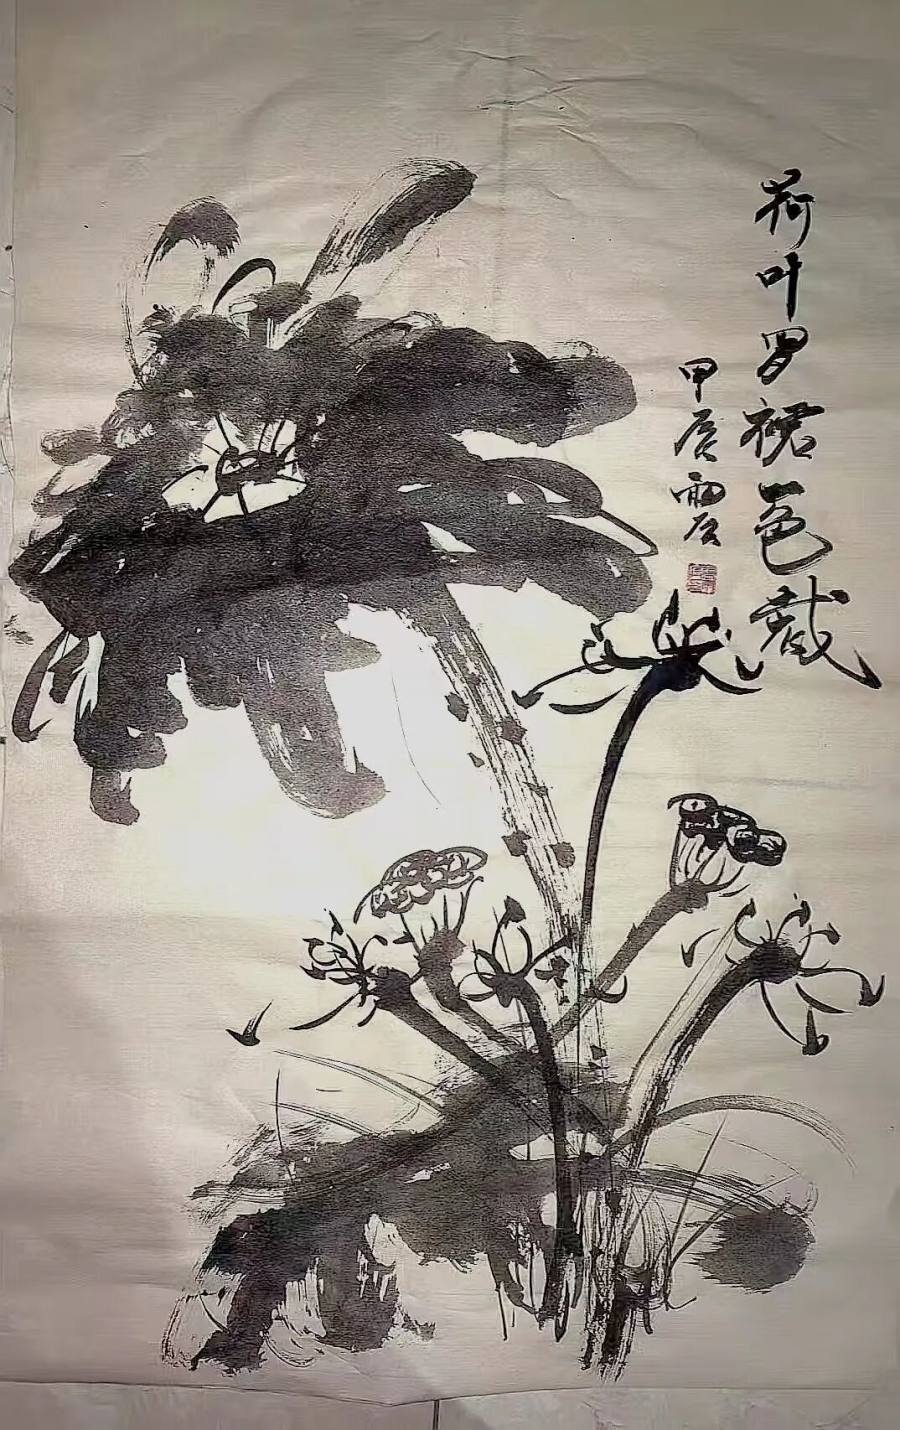 荷叶罗裙一色裁
甲辰雲辰